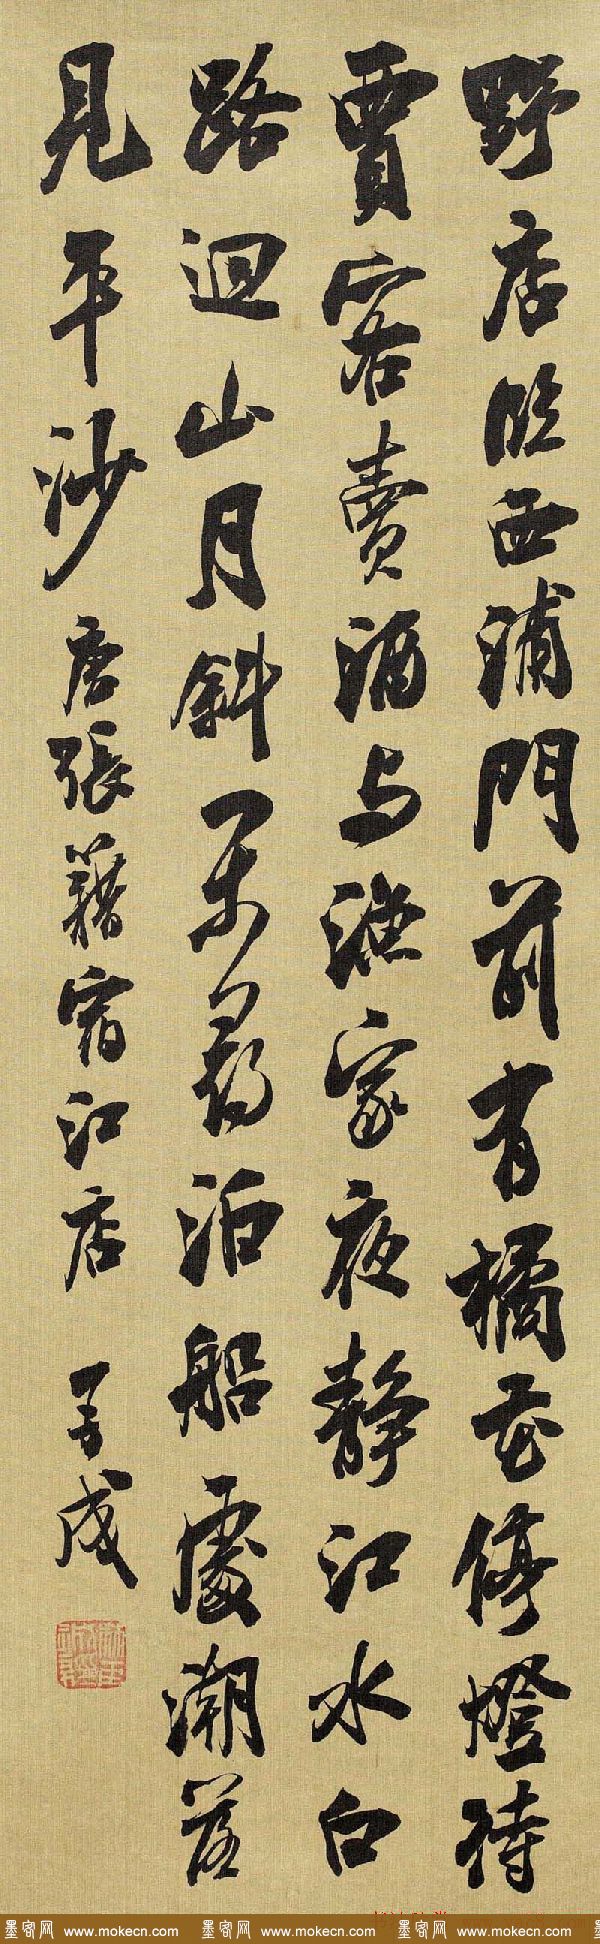 野店臨西浦門前有橘花停燈待
賈客賣酒与漁家夜靜江水白
路迴山月斜閒尋泊船處潮落
見平沙 唐張籍宿江店
墨客网 www.mokecn.com 墨客网 www.mokecn.com 墨客网 www.mokecn.com